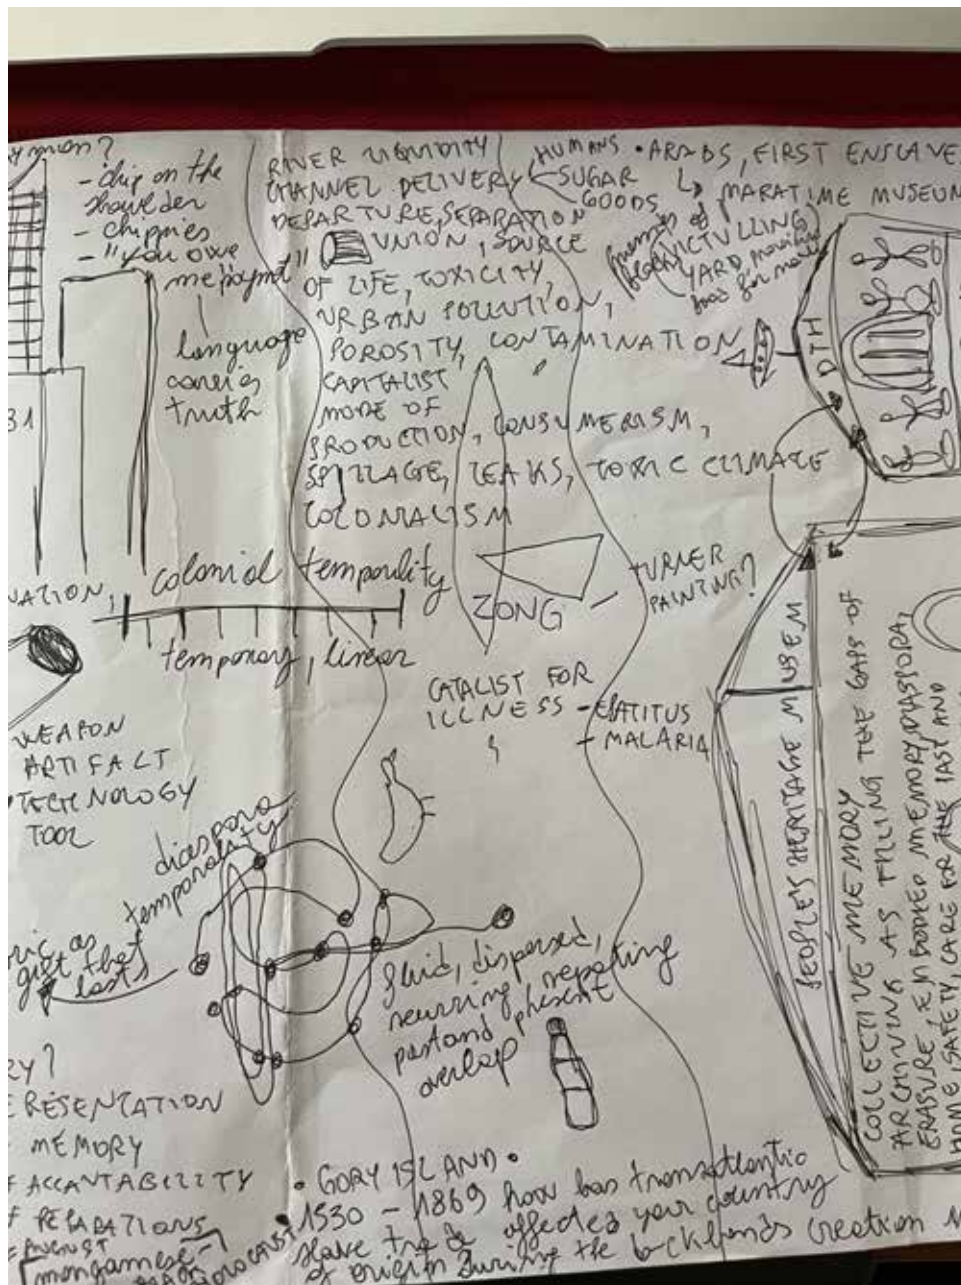 - chip on the
shoulder
- chippies
- "you owe
me payment"
language
carries
truth
31
RIVER LIQUIDITY
CHANNEL DELIVERY
DEPARTURE, SEPARATION
UNION, SOURCE
OF LIFE, TOXICITY,
URBAN POLLUTION,
POROSITY, CONTAMINATION
CAPITALIST
MODE OF
PRODUCTION, CONSUMERISM,
SPILLAGE, LEAKS, TOXIC CLIMATE
COLONIALISM
HUMANS
SUGAR
GOODS
• ARABS, FIRST ENSLAVE
MARATIME MUSEUM
VICTULLING
YARD
DTH
colonial temporality
temporary, linear
ZONG
TURNER
PAINTING?
CATALIST FOR
ILLNESS
- MALARIA
WEAPON
ARTIFACT
TECHNOLOGY
TOOL
diaspora
temporality
gift that
lasts
fluid, dispersed,
recurring, repeating
past and present
overlap
PEOPLE'S HERITAGE MUSEM
COLLECTIVE MEMORY
ARCHIVING AS FILLING THE GAPS OF
ERASURE, EMBODIED MEMORY, DIASPORA,
HOME SAFETY, CARE FOR THE PAST AND
MEMORY
ACCANTABILITY
REPARATIONS
• GORY ISLAND •
1530 - 1869 how has transatlantic
slave trade affected your country
of origin during the creation